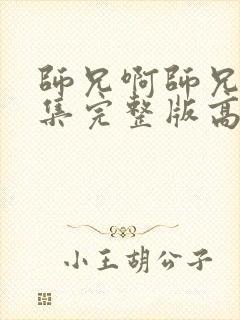 師兄啊師兄
集完整版高
小王胡公子